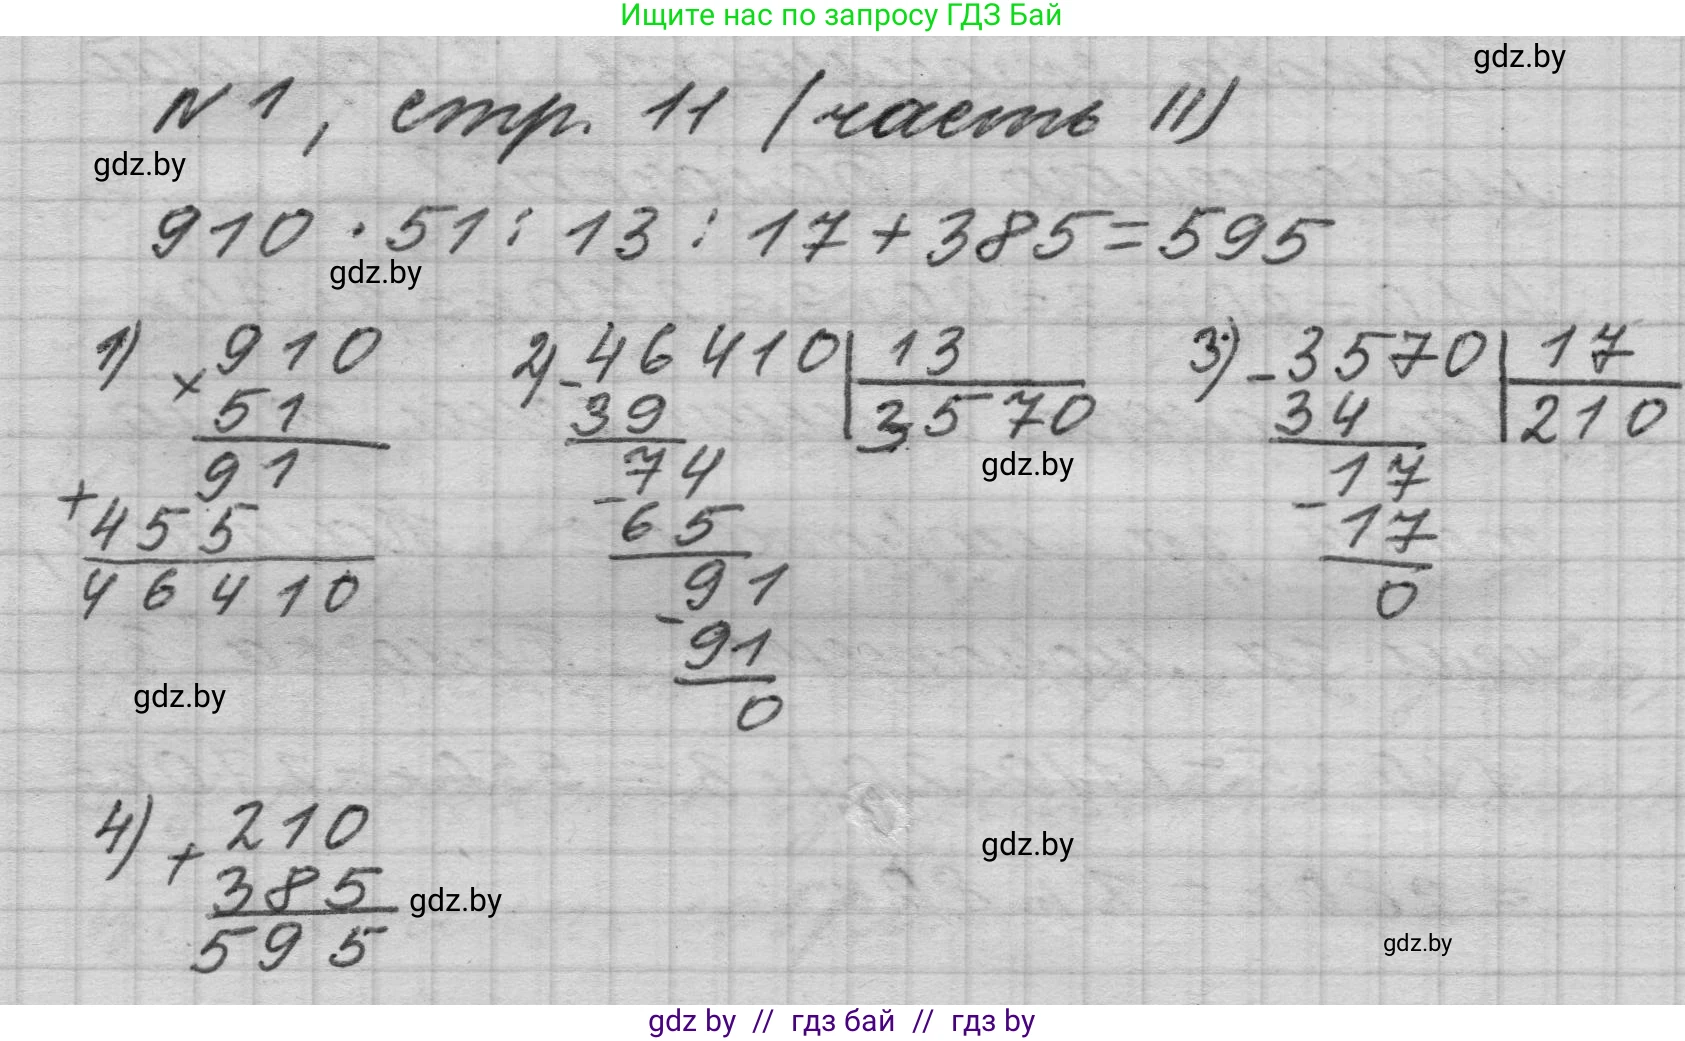 Ищите нас по запросу ГДЗ Бай
gdz.by
№ 1, стр. 11 (часть II)
gdz.by
910 · 51 : 13 : 17 + 385 = 595
gdz.by
1) 910
× 51
91
+ 455
46410
2) - 46410 | 13
39 | 3570
74
- 65
91
- 91
0
gdz.by
3) - 3570 | 17
34 | 210
17
- 17
0
gdz.by
4) + 210
385
595
gdz.by
gdz.by
gdz.by
gdz by // гдз бай // гдз by